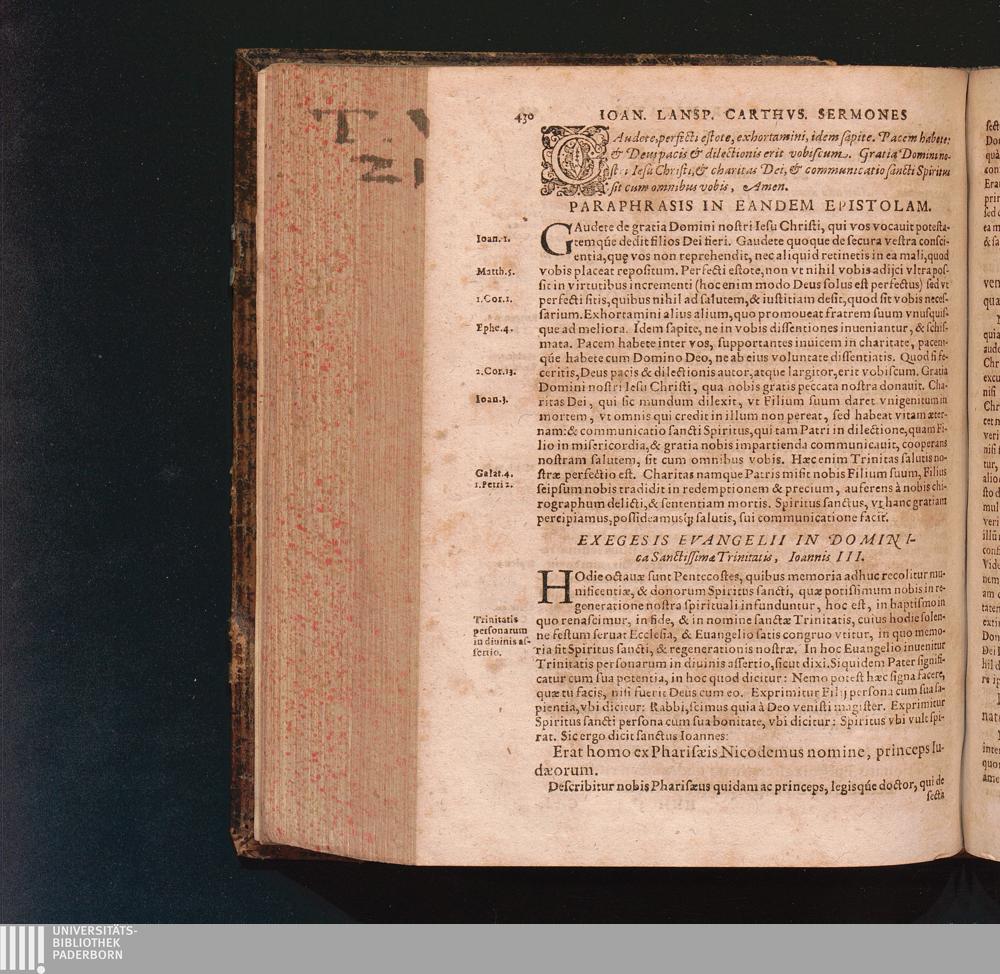 430 IOAN. LANSP. CARTHVS. SERMONES
GAudete, perfecti estote, exhortamini, idem sapite. Pacem habete:
& Deus pacis & dilectionis erit vobiscum. Gratia Domini no-
stri Iesu Christi, & charitas Dei, & communicatio sancti Spiritus
sit cum omnibus vobis, Amen.
PARAPHRASIS IN EANDEM EPISTOLAM.
GAudete de gratia Domini nostri Iesu Christi, qui vos vocauit potesta-
Ioan. 1. temq́ue dedit filios Dei fieri. Gaudete quoque de secura vestra consci-
entia, quę vos non reprehendit, nec aliquid retinetis in ea mali, quod
Matth. 5. vobis placeat repositum. Perfecti estote, non vt nihil vobis adijci vltra pos-
sit in virtutibus incrementi (hoc enim modo Deus solus est perfectus) sed vt
1. Cor. 1. perfecti sitis, quibus nihil ad salutem, & iustitiam desit, quod sit vobis neces-
sarium. Exhortamini alius alium, quo promoueat fratrem suum vnusquis-
Ephe. 4. que ad meliora. Idem sapite, ne in vobis dissentiones inueniantur, & schis-
mata. Pacem habete inter vos, supportantes inuicem in charitate, pacem-
q́ue habete cum Domino Deo, ne ab eius voluntate dissentiatis. Quod si fe-
2. Cor. 13. ceritis, Deus pacis & dilectionis autor, atque largitor, erit vobiscum. Gratia
Domini nostri Iesu Christi, qua nobis gratis peccata nostra donauit. Cha-
Ioan. 3. ritas Dei, qui sic mundum dilexit, vt Filium suum daret vnigenitum in
mortem, vt omnis qui credit in illum non pereat, sed habeat vitam æter-
nam: & communicatio sancti Spiritus, qui tam Patri in dilectione, quam Fi-
lio in misericordia, & gratia nobis impartienda communicauit, cooperans
nostram salutem, sit cum omnibus vobis. Hæc enim Trinitas salutis no-
Galat. 4. stræ perfectio est. Charitas namque Patris misit nobis Filium suum, Filius
1. Petri 2. seipsum nobis tradidit in redemptionem & precium, auferens à nobis chi-
rographum delicti, & sententiam mortis. Spiritus sanctus, vt hanc gratiam
percipiamus, possideamusq́; salutis, sui communicatione facit.
EXEGESIS EVANGELII IN DOMINI-
ca Sanctissimæ Trinitatis, Ioannis III.
HOdie octauæ sunt Pentecostes, quibus memoria adhuc recolitur mu-
nificentiæ, & donorum Spiritus sancti, quæ potissimum nobis in re-
generatione nostra spirituali infunduntur, hoc est, in baptismo in
Trinitatis quo renascimur, in fide, & in nomine sanctæ Trinitatis, cuius hodie solen-
personarum ne festum seruat Ecclesia, & Euangelio satis congruo vtitur, in quo memo-
in diuinis as- ria fit Spiritus sancti, & regenerationis nostræ. In hoc Euangelio inuenitur
sertio. Trinitatis personarum in diuinis assertio, sicut dixi. Siquidem Pater signifi-
catur cum sua potentia, in hoc quod dicitur: Nemo potest hæc signa facere,
quæ tu facis, nisi fuerit Deus cum eo. Exprimitur Filij persona cum sua sa-
pientia, vbi dicitur: Rabbi, scimus quia à Deo venisti magister. Exprimitur
Spiritus sancti persona cum sua bonitate, vbi dicitur: Spiritus vbi vult spi-
rat. Sic ergo dicit sanctus Ioannes:
Erat homo ex Pharisæis Nicodemus nomine, princeps Iu-
dæorum.
Describitur nobis Pharisæus quidam ac princeps, legisq́ue doctor, qui de
secta
UNIVERSITÄTS-
BIBLIOTHEK
PADERBORN